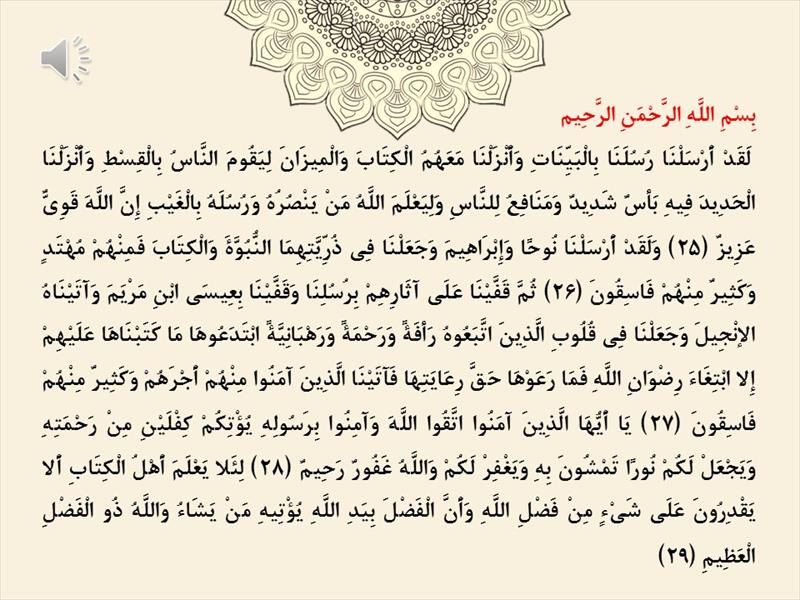 بِسْمِ اللَّهِ الرَّحْمَنِ الرَّحِيم
لَقَدْ أَرْسَلْنَا رُسُلَنَا بِالْبَيِّنَاتِ وَأَنْزَلْنَا مَعَهُمُ الْكِتَابَ وَالْمِيزَانَ لِيَقُومَ النَّاسُ بِالْقِسْطِ وَأَنْزَلْنَا
الْحَدِيدَ فِيهِ بَأْسٌ شَدِيدٌ وَمَنَافِعُ لِلنَّاسِ وَلِيَعْلَمَ اللَّهُ مَنْ يَنْصُرُهُ وَرُسُلَهُ بِالْغَيْبِ إِنَّ اللَّهَ قَوِیٌّ
عَزِيزٌ (۲۵) وَلَقَدْ أَرْسَلْنَا نُوحًا وَإِبْرَاهِيمَ وَجَعَلْنَا فِی ذُرِّيَّتِهِمَا النُّبُوَّةَ وَالْكِتَابَ فَمِنْهُمْ مُهْتَدٍ
وَكَثِيرٌ مِنْهُمْ فَاسِقُونَ (۲۶) ثُمَّ قَفَّيْنَا عَلَى آثَارِهِمْ بِرُسُلِنَا وَقَفَّيْنَا بِعِيسَى ابْنِ مَرْيَمَ وَآتَيْنَاهُ
الإنْجِيلَ وَجَعَلْنَا فِی قُلُوبِ الَّذِينَ اتَّبَعُوهُ رَأْفَةً وَرَحْمَةً وَرَهْبَانِيَّةً ابْتَدَعُوهَا مَا كَتَبْنَاهَا عَلَيْهِمْ
إِلا ابْتِغَاءَ رِضْوَانِ اللَّهِ فَمَا رَعَوْهَا حَقَّ رِعَايَتِهَا فَآتَيْنَا الَّذِينَ آمَنُوا مِنْهُمْ أَجْرَهُمْ وَكَثِيرٌ مِنْهُمْ
فَاسِقُونَ (۲۷) يَا أَيُّهَا الَّذِينَ آمَنُوا اتَّقُوا اللَّهَ وَآمِنُوا بِرَسُولِهِ يُؤْتِكُمْ كِفْلَيْنِ مِنْ رَحْمَتِهِ
وَيَجْعَلْ لَكُمْ نُورًا تَمْشُونَ بِهِ وَيَغْفِرْ لَكُمْ وَاللَّهُ غَفُورٌ رَحِيمٌ (۲۸) لِئَلا يَعْلَمَ أَهْلُ الْكِتَابِ أَلا
يَقْدِرُونَ عَلَى شَیْءٍ مِنْ فَضْلِ اللَّهِ وَأَنَّ الْفَضْلَ بِيَدِ اللَّهِ يُؤْتِيهِ مَنْ يَشَاءُ وَاللَّهُ ذُو الْفَضْلِ
الْعَظِيمِ (۲۹)